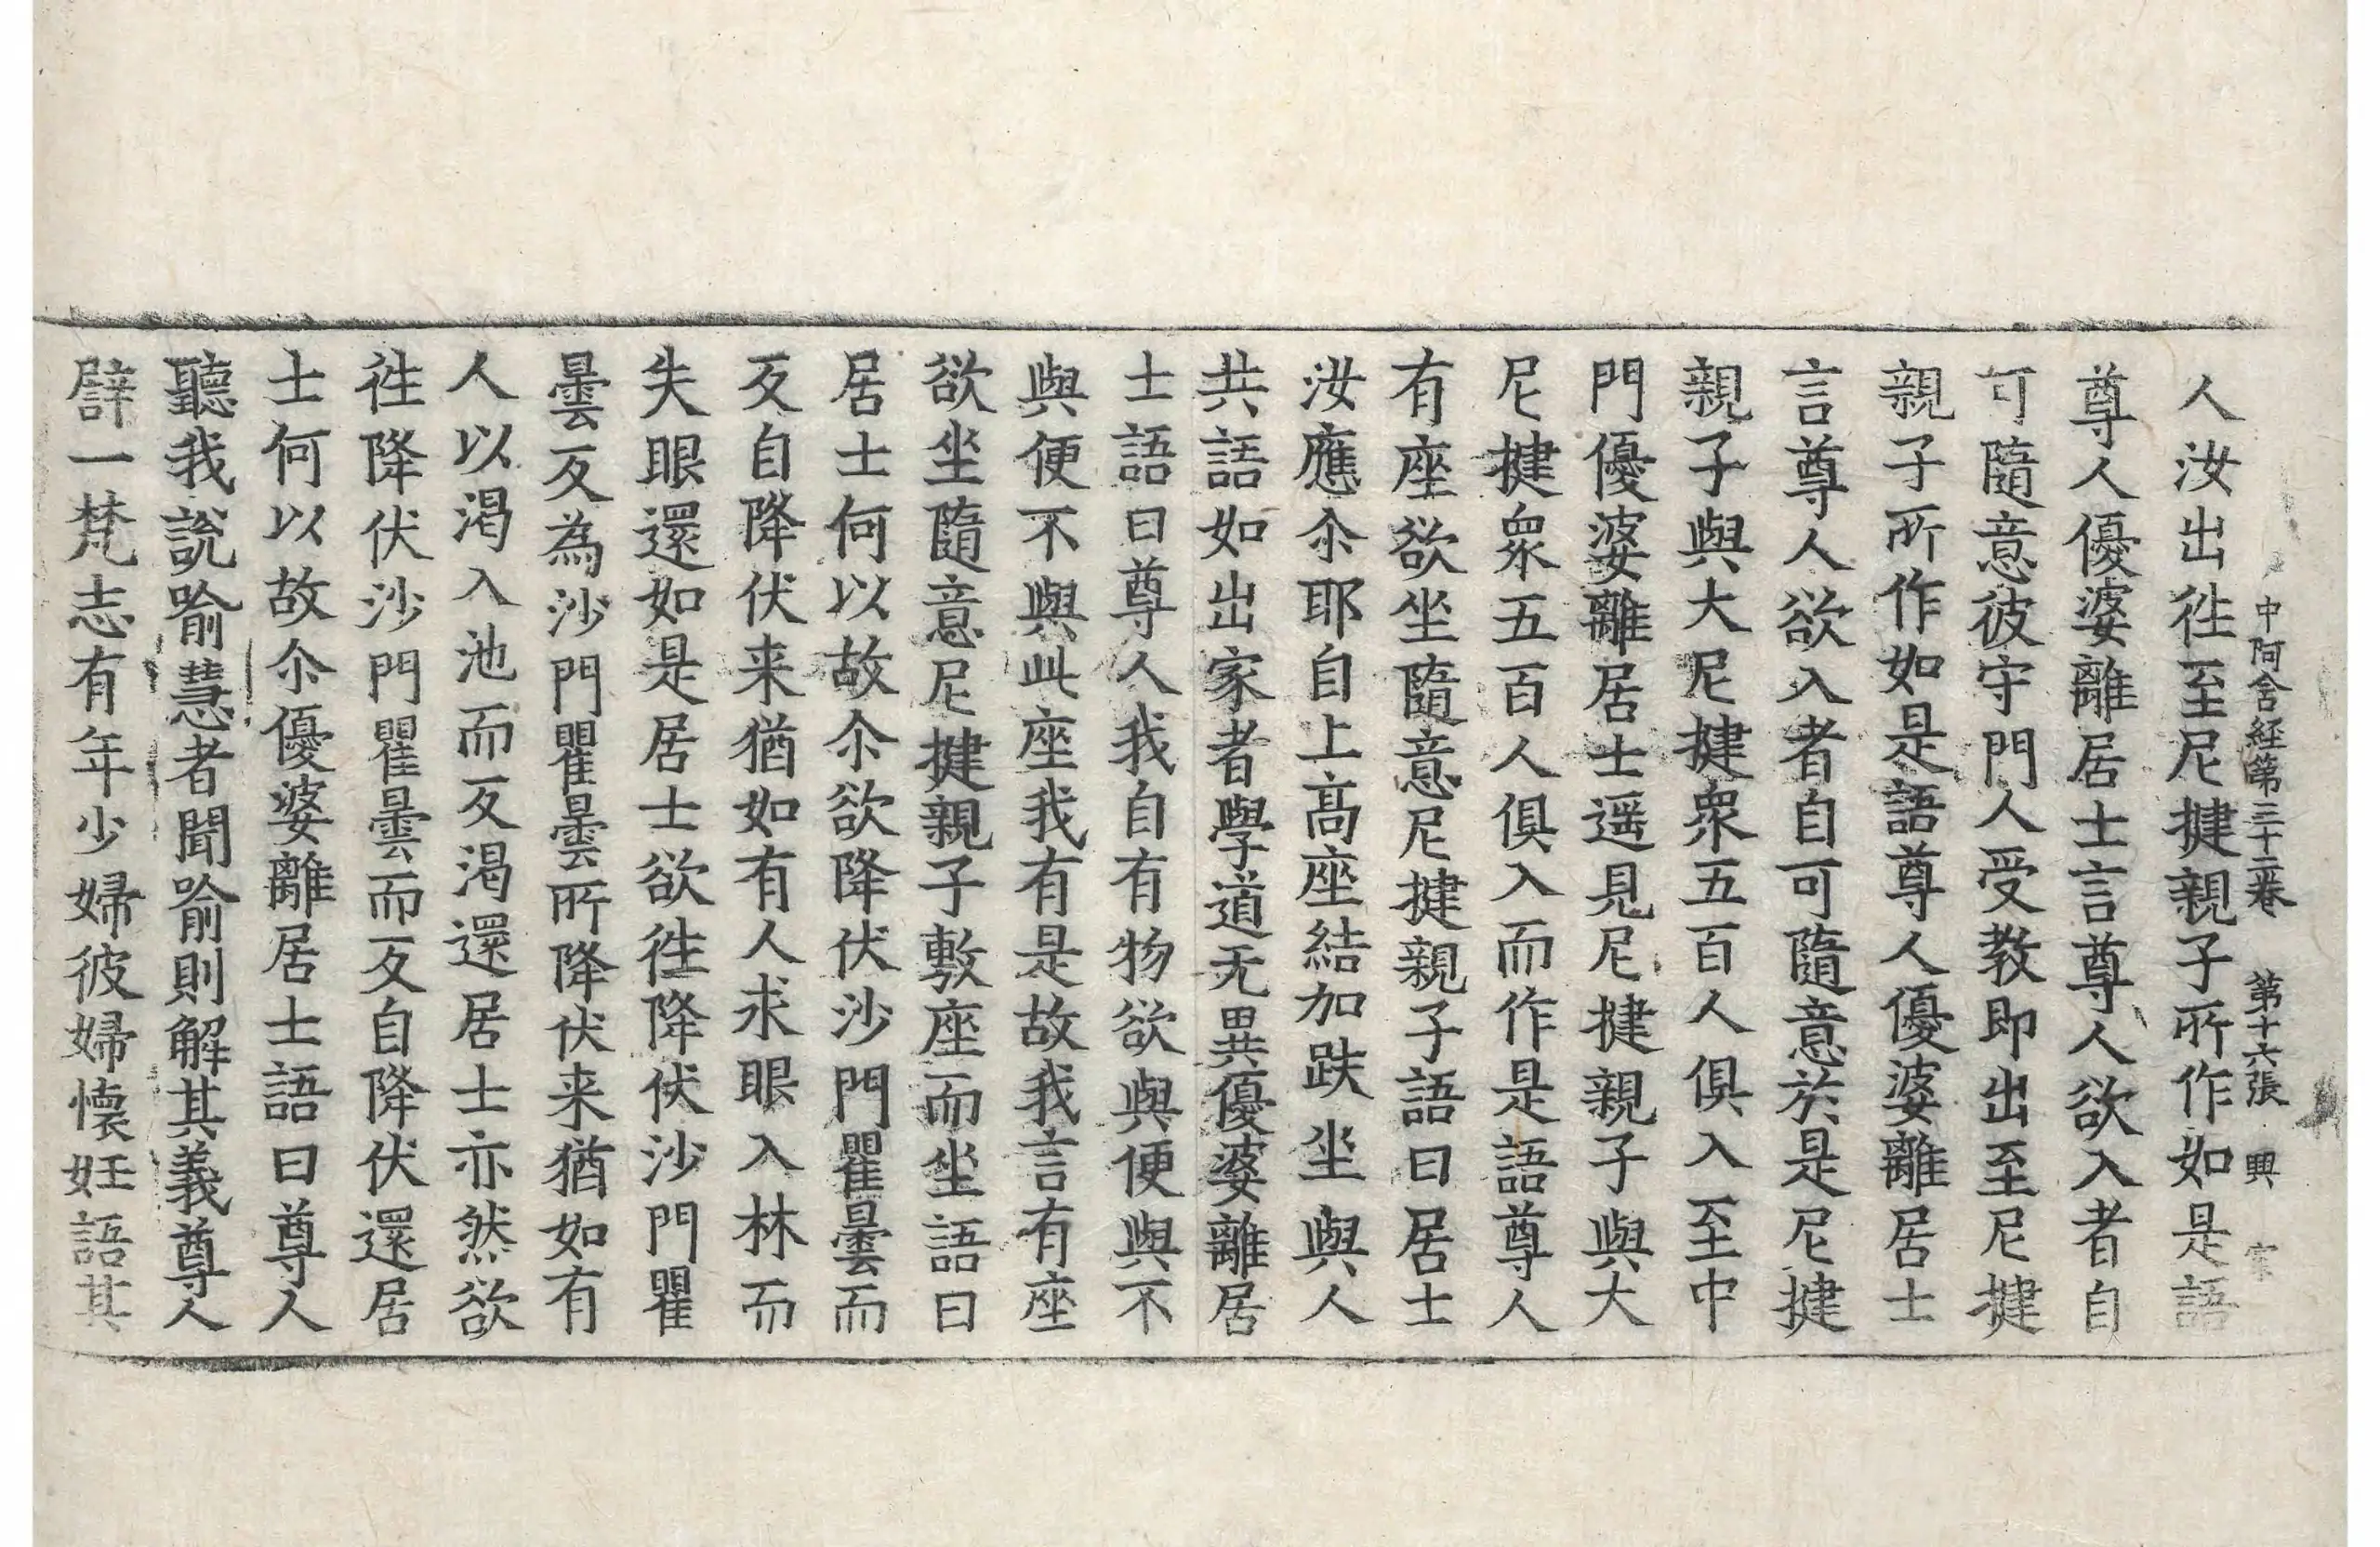 中阿含経第三十二卷 第十六張 興
人汝出徃至尼揵親子所作如是語
尊人優婆離居士言尊人欲入者自
可隨意彼守門人受教即出至尼揵
親子所作如是語尊人優婆離居士
言尊人欲入者自可隨意於是尼揵
親子與大尼揵衆五百人俱入至中
門優婆離居士遥見尼揵親子與大
尼揵衆五百人俱入而作是語尊人
有座欲坐隨意尼揵親子語曰居士
汝應尒耶自上高座結加趺坐與人
共語如出家者學道无異優婆離居
士語曰尊人我自有物欲與便與不
與便不與此座我有是故我言有座
欲坐隨意尼揵親子敷座而坐語曰
居士何以故尒欲降伏沙門瞿曇而
反自降伏来猶如有人求眼入林而
失眼還如是居士欲徃降伏沙門瞿
曇反為沙門瞿曇所降伏来猶如有
人以渴入池而反渴還居士亦然欲
徃降伏沙門瞿曇而反自降伏還居
士何以故尒優婆離居士語曰尊人
聽我說喻慧者聞喻則解其義尊人
譬一梵志有年少婦彼婦懷妊語其